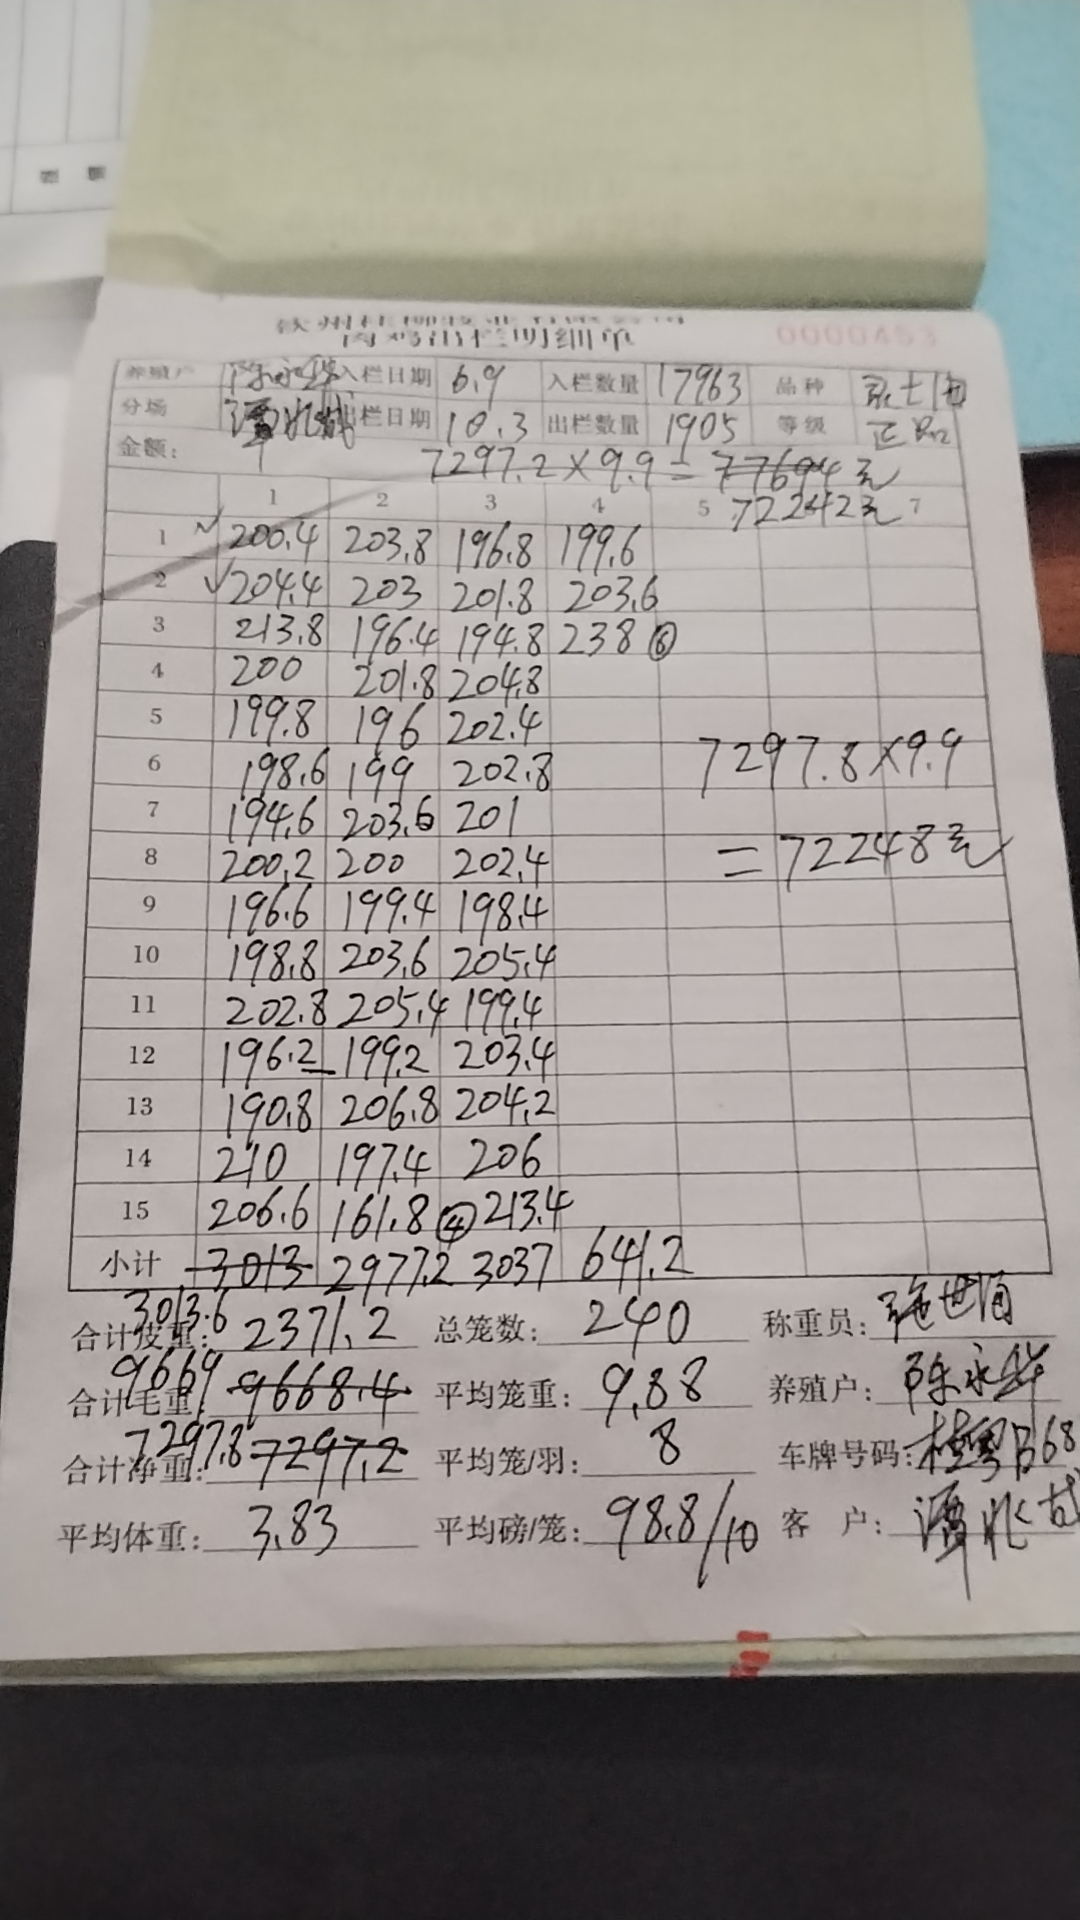 肉鸡出栏明细单 0000453
养殖户 陈永华 入栏日期 6.9 入栏数量 17963 品种
分场 入栏日期 10.3 出栏数量 1905 等级
金额: 7297.2×9.9=77694元
72242元
1 2 3 4 5 7
1 200.4 203.8 196.8 199.6
2 204.4 203 201.8 203.6
3 213.8 196.4 194.8 238 ⑥
4 200 201.8 204.8
5 199.8 196 202.4
6 198.6 199 202.8
7 194.6 203.6 201
8 200.2 200 202.4
9 196.6 199.4 198.4
10 198.8 203.6 205.4
11 202.8 205.4 199.4
12 196.2 199.2 203.4
13 190.8 206.8 204.2
14 210 197.4 206
15 206.6 161.8 ④ 213.4
小计 3013 2977.2 3037 641.2
3013.6
7297.8×9.9
=72248元
合计皮重: 2371.2 总笼数: 240 称重员:
9669
合计毛重: 9668.4 平均笼重: 9.88 养殖户: 陈永华
7297.8
合计净重: 7297.2 平均笼/羽: 8 车牌号码:
平均体重: 3.83 平均磅/笼: 98.8/10 客户: